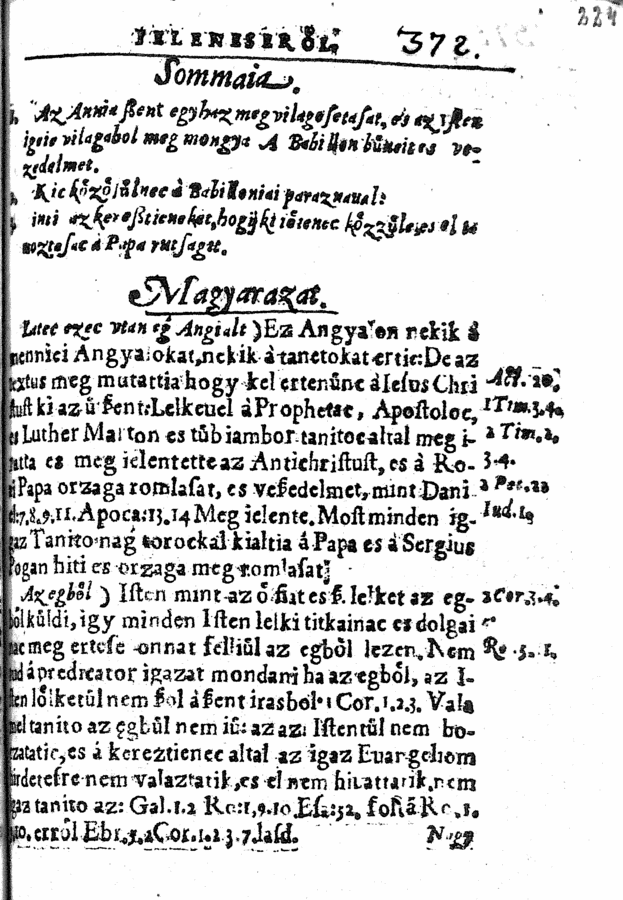 224
IELENESEROL. 372.
Sommaia.
Az Annia ßent egyhaz meg vilagosetasat, es az Isten
igeie vilagabol meg mongya A Babillon bůneit es ve-
zedelmet.
Kic kȯzȯsůlnec à Babilloniai paraznaual:
inti az kereßtieneket, hogy ki iȯienec kȯzzůle, es el ta
uoztassac à Papa rutsagat.
Magyarazat.
Latec ezec vtan eg Angialt ) Ez Angyalon nekik á
menniei Angyalokat, nekik à tanetokat ertic: De az
textus meg mutattia hogy kel ertenůnc à Iesus Chri
stust ki az ů ßent Lelkeuel à Prophetac, Apostoloc,
es Luther Marton es tůb iambor tanitoc altal meg i-
ratta es meg ielentette az Antichristust, es à Ro-
mai Papa orzaga romlasat, es veßedelmet, mint Dani.
el: 7.8.9.11. Apoca: 13.14 Meg ielente. Most minden ig-
gaz Tanito nag torockal kialtia á Papa es à Sergius
Pogan hiti es orzaga meg romlasat:
Act. 20.
1 Tim. 3.4.
2 Tim. 2.
3.4.
2 Pet. 2
Iud. 1
Az egbȯl ) Isten mint az ȯ fiat es ß. lelket az eg-
bȯl kůldi, igy minden Isten lelki titkainac es dolgai
nac meg ertese onnat felliůl az egbȯl lezen. Nem
tud á predicator igazat mondani ha az egbȯl, az I-
sten lȯlketůl nem ßol á ßent irasbol: 1 Cor. 1.2.3. Vala
mel tanito az egbůl nem iů: az az: Istentůl nem bo-
czatatic, es á kereztienec altal az igaz Euangeliom
hirdetesre nem valaztatik, es el nem hiuattatik, nem
igaz tanito az: Gal. 1.2 Ro: 1.9.10. Esa: 52. Ro. 1.
10. errȯl Ebr. 5. 2 Cor. 1.2 3.7. lasd.
2 Cor. 3.4.
Ro. 5. 1.
Nagy